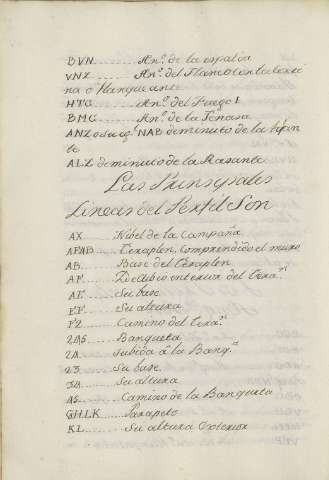 BVN........An.º de la espalda
VNX........An.º del Flanco con la corti
na o flanqueante
HTG........An.º del Fuego
BMG........An.º de la Tenasa
ANX o su ig.l NAB deminuto de la fixan
te
ALZ deminuto de la Rasante
Las Prinsypales
Lineas del Perfil Son
AX........Nibel de la Campaña
AFAB........Teraplen, comprendido el muro
AB........Base del Teraplen
AF........Declibio interior del Tera.n
AE........Su base
EF........Su altura
F2........Camino del Tera.n
2A5........Banqueta
2A........Subida a la Banq.a
23........Su base
3A........Su altura
A5........Camino de la Banqueta
GHLK........Parapeto
KL........Su altura Exterior